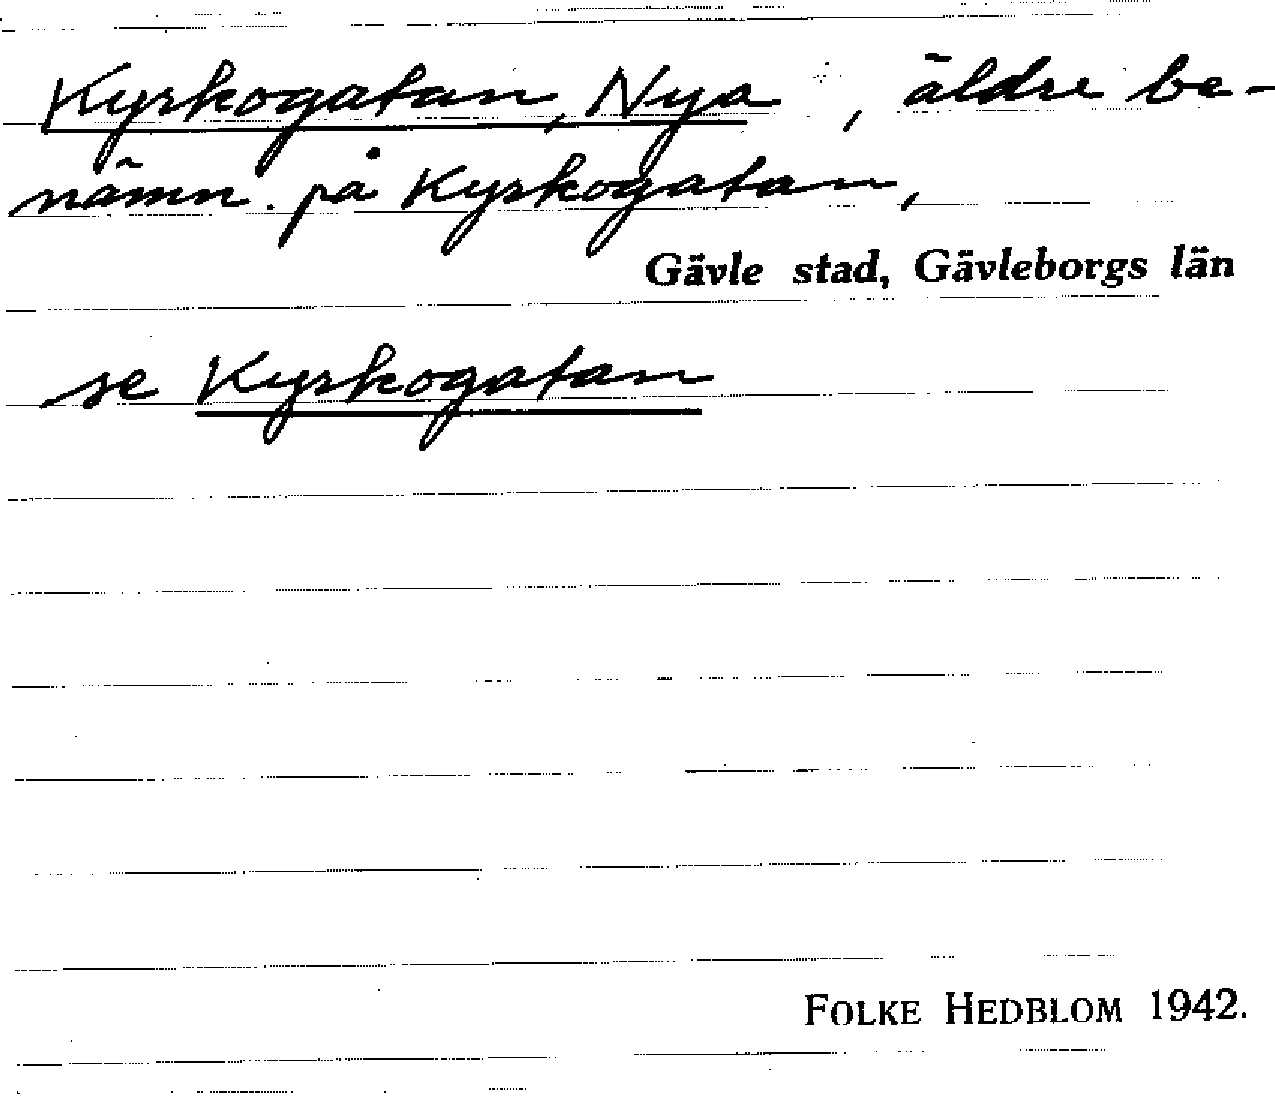 Kyrkogatan, Nya, äldre be-
nämn. på Kyrkogatan,
Gävle stad, Gävleborgs län
se Kyrkogatan
FOLKE HEDBLOM 1942.